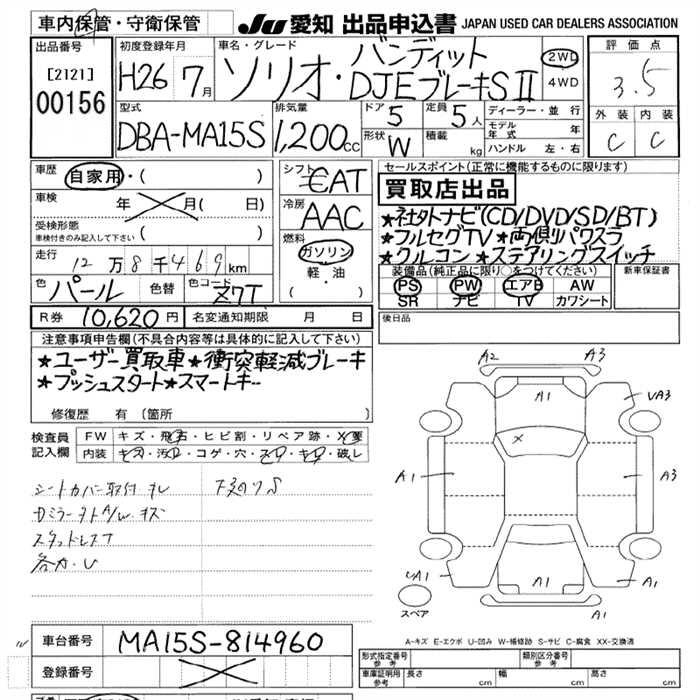 車内保管・守衛保管
JU 愛知 出品申込書 JAPAN USED CAR DEALERS ASSOCIATION
出品番号
[2121]
00156
初度登録年月
H26 7月
車名・グレード
ソリオ・バンディット
DJEブレーキSⅡ
2WD
4WD
評価点
3.5
外装 内装
C C
型式
DBA-MA15S
排気量
1,200cc
ドア 5
定員 5人
形状 W
積載 kg
ディーラー・並行
モデル年式 年
ハンドル 左・右
車歴
自家用・( )
車検 年 月( 日)
受検形態
車検付きのみ記入して下さい ( )
走行 12万8千469km
色 パール 色替 色コード Z7T
R券 10,620円 名変通知期限 月 日
シフト
CAT
冷房
AAC
燃料
ガソリン
軽・油
( )
セールスポイント(正常に機能するものに限ります)
買取店出品
★社外ナビ(CD/DVD/SD/BT)
★フルセグTV ★両側パワスラ
★クルコン ★ステアリングスイッチ
装備品(純正品に限り○をつけてください)
PS PW エアB AW
SR ナビ TV カワシート
新車保証書
後日品
注意事項申告欄(不具合内容等は具体的に記入して下さい)
★ユーザー買取車★衝突軽減ブレーキ
★プッシュスタート★スマートキー
修復歴 有 〔箇所 〕
検査員
記入欄
FW キズ・飛石・ヒビ割・リペア跡・X要
内装 キズ・汚レ・コゲ・穴・スレ・キレ・破レ
シートカバー取付
スタッドレス
各カ・U
A2 A3
A1
UA3
A1
A3
UA1
A1
A1
A1
スペア
A-キズ E-エクボ U-凹み W-補修跡 S-サビ C-腐食 XX-交換済
車台番号 MA15S-814960
登録番号
形式指定番号 参考
類別区分番号 参考
車庫証明用 参考 長さ cm 幅 cm 高さ cm